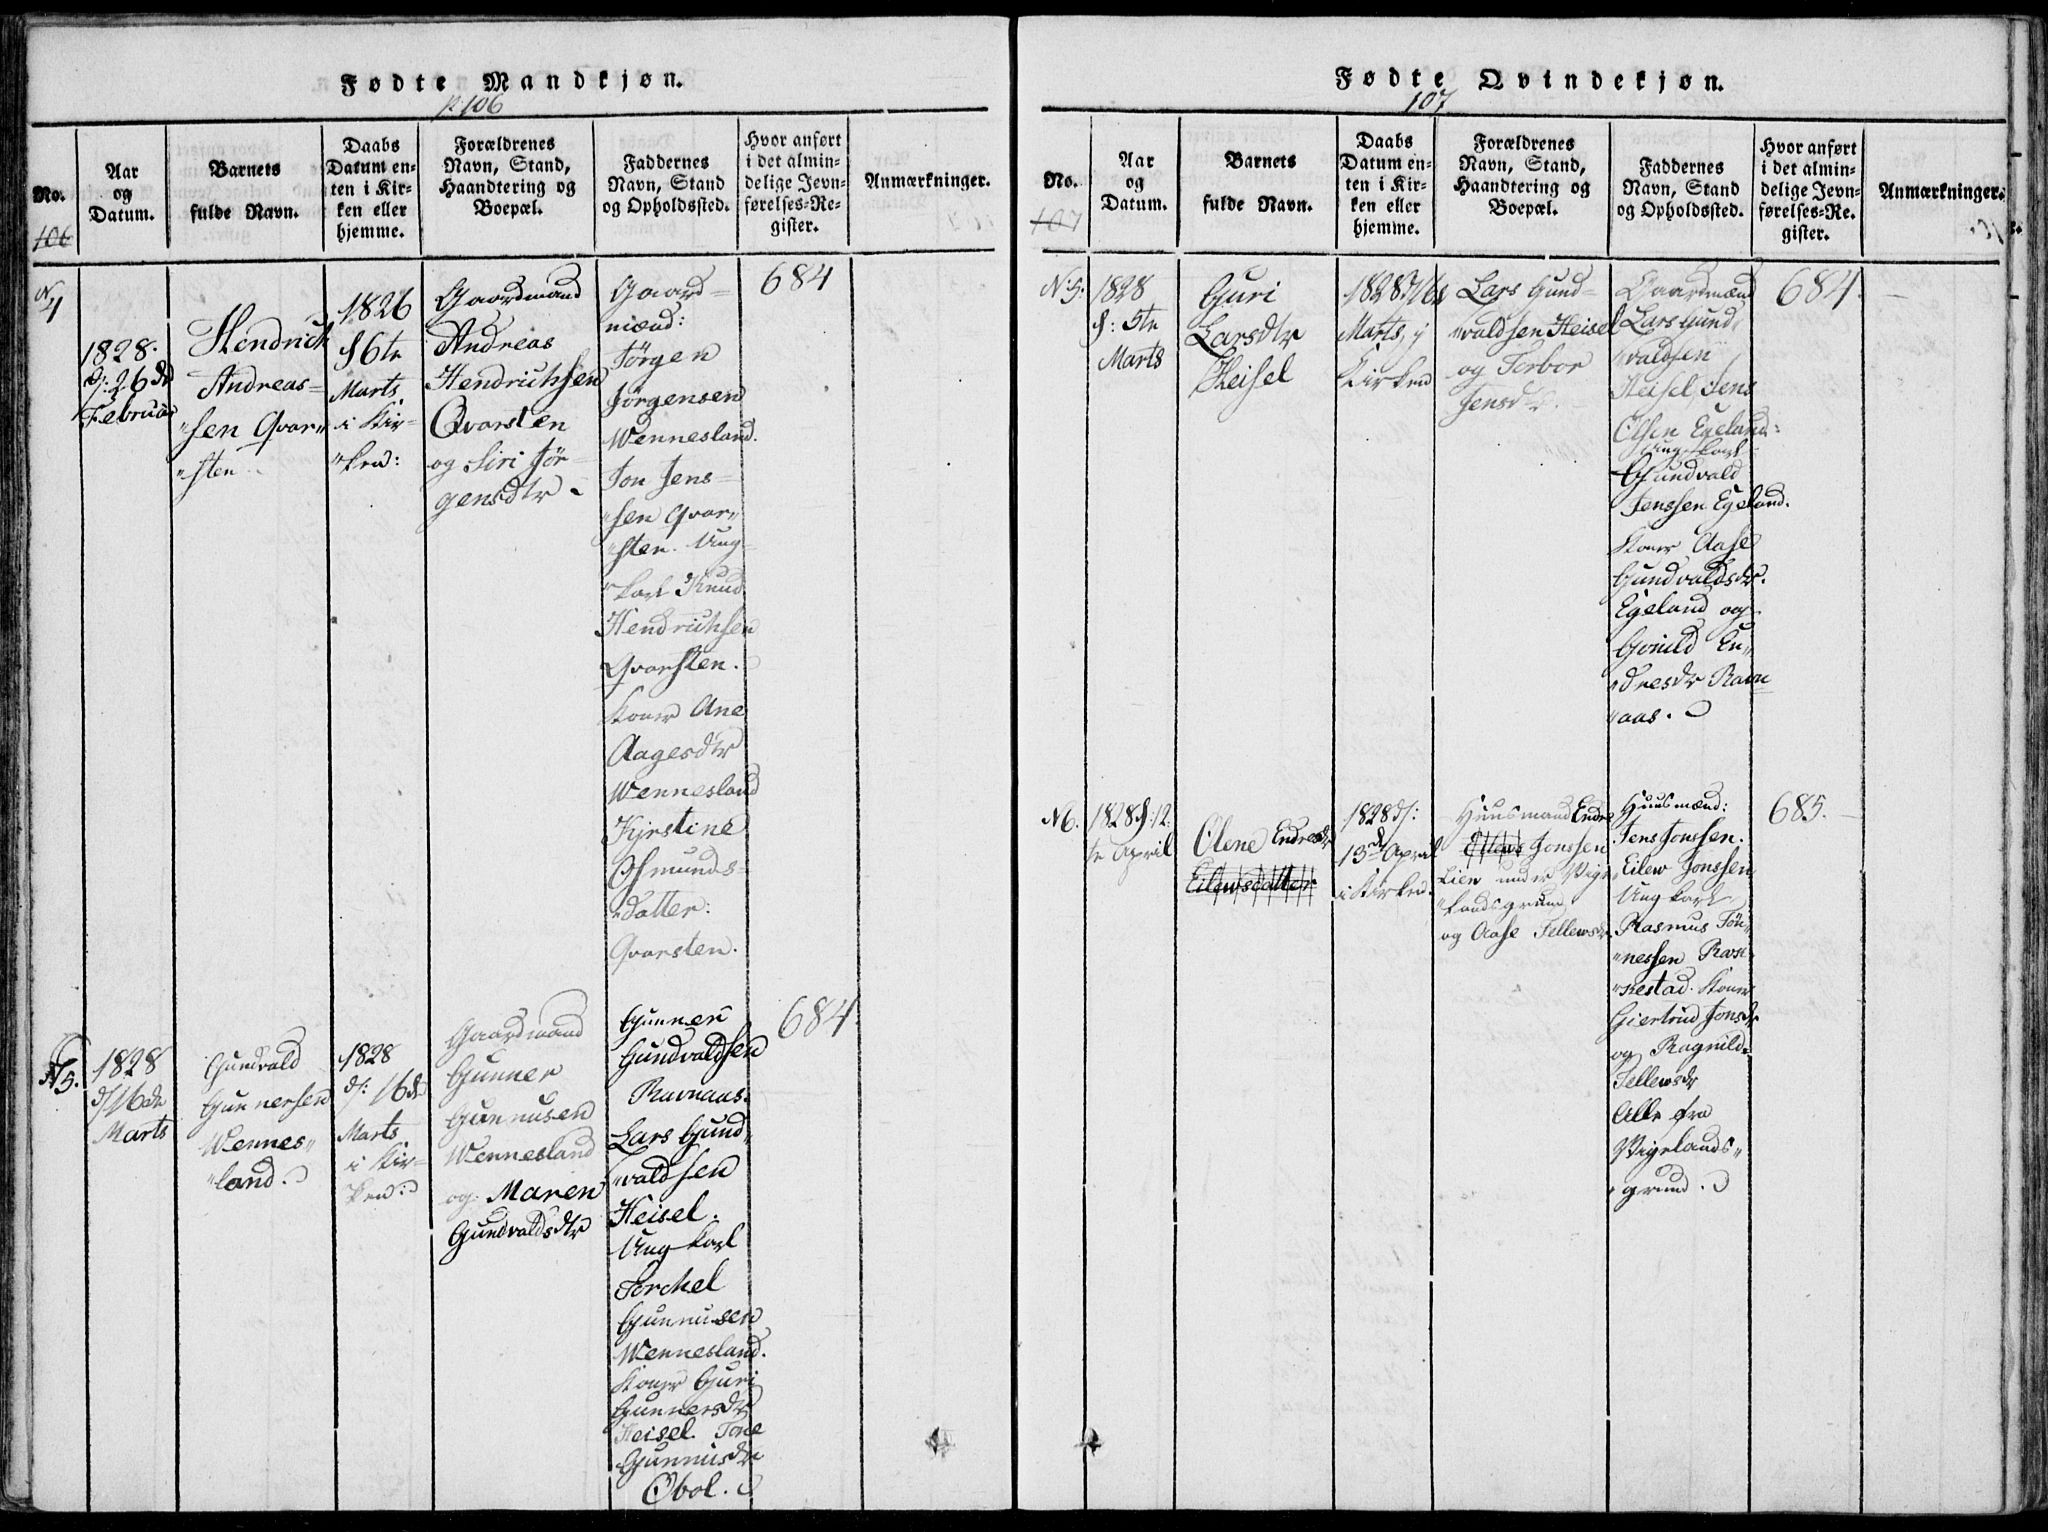 Fødte Mandkjøn.
p. 106
No.
106
Aar
og
Datum.
Barnets
fulde Navn.
Daabs
Datum en-
ten i Kir-
ken eller
hjemme.
Forældrenes
Navn, Stand,
Haandtering og
Boepæl.
Faddernes
Navn, Stand
og Opholdssted.
Hvor anført
i det almin-
delige Jevn-
førelses-Re-
gister.
Anmærkninger.
N
4
1828.
d: 26de
Februar
Hendrich
Andreas-
"sen Qvar"
"sten
1826
16te
Marts
i Kir-
"ken:
Gaardmand
Andreas
Hendrichsen
Qvarsten
og Siri Jör-
gensdtr
Gaard-
mænd:
Jörgen
Jörgensen
Wennesland.
Jon Jens-
"sen Qvar"
"sten. Ung-
"karl Knud
Hendrichsen
Qvarsten.
Koner Ane
Aagesdtr
Wennesland
Kjrstine
Osmunds-
"datter:
Qvarsten.
684
N5.
1828
d/16de
Marts
Gundvald
Gunnersen
Wennes"
"land.
1828
d: 16de
Marts
i Kir-
ken:
Gaardmand
Gunner
Gunnusen
Wennesland
og Maren
Gundvaldsdtr
Gunner
Gundvaldsen
Ravnaas.
Lars Gund"
"valdsen
Heisel.
Ung karl
Torchel
Gunnusen
Wennesland.
Koner Guri
Gunnersdtr
Heisel. Tone
Gunnusdtr
Øbol.
684
Fødte Qvindekjøn.
107
No.
107
Aar
og
Datum.
Barnets
fulde Navn.
Daabs
Datum en-
ten i Kir-
ken eller
hjemme.
Forældrenes
Navn, Stand,
Haandtering og
Boepæl.
Faddernes
Navn, Stand
og Opholdssted.
Hvor anført
i det almin-
delige Jevn-
førelses-Re-
gister.
Anmærkninger.
N:5:
1828
d: 5te
Marts
Guri
Larsdtr
Heisel
1828 d/16d
Marts, i
Kirken
Lars Gund-
"valdsen Heisel
og Torbor
Jensdtr.
Gaardmænd
Lars Gund"
"valdsen
Heisel, Jens
Olsen Egeland:
Ung karl
Gundvald
Jenssen Egeland.
Koner Aase
Gundvaldsdr.
Egeland og
Gonild En"
"dresdr Ravn
"aas.
684.
N6.
1828 d: 12
te April
Olene Endresdr
Eilewsdatter
1828 d/:
13de April
i Kirken.
Huusmand Endre
Eilews Jonssen
Lien under Vige
"landsgrund
og Aase Tellewsdr
Huusmænd:
Jens Jonssen.
Eilew Jonssen
Ung karl
Rasmus Tön"
"nessen Rosse
"kestad. Koner
Giertrud Jonsdr
og Ragnild
Tellewsdr
Alle fra
Vigelands"
"grund.
685.